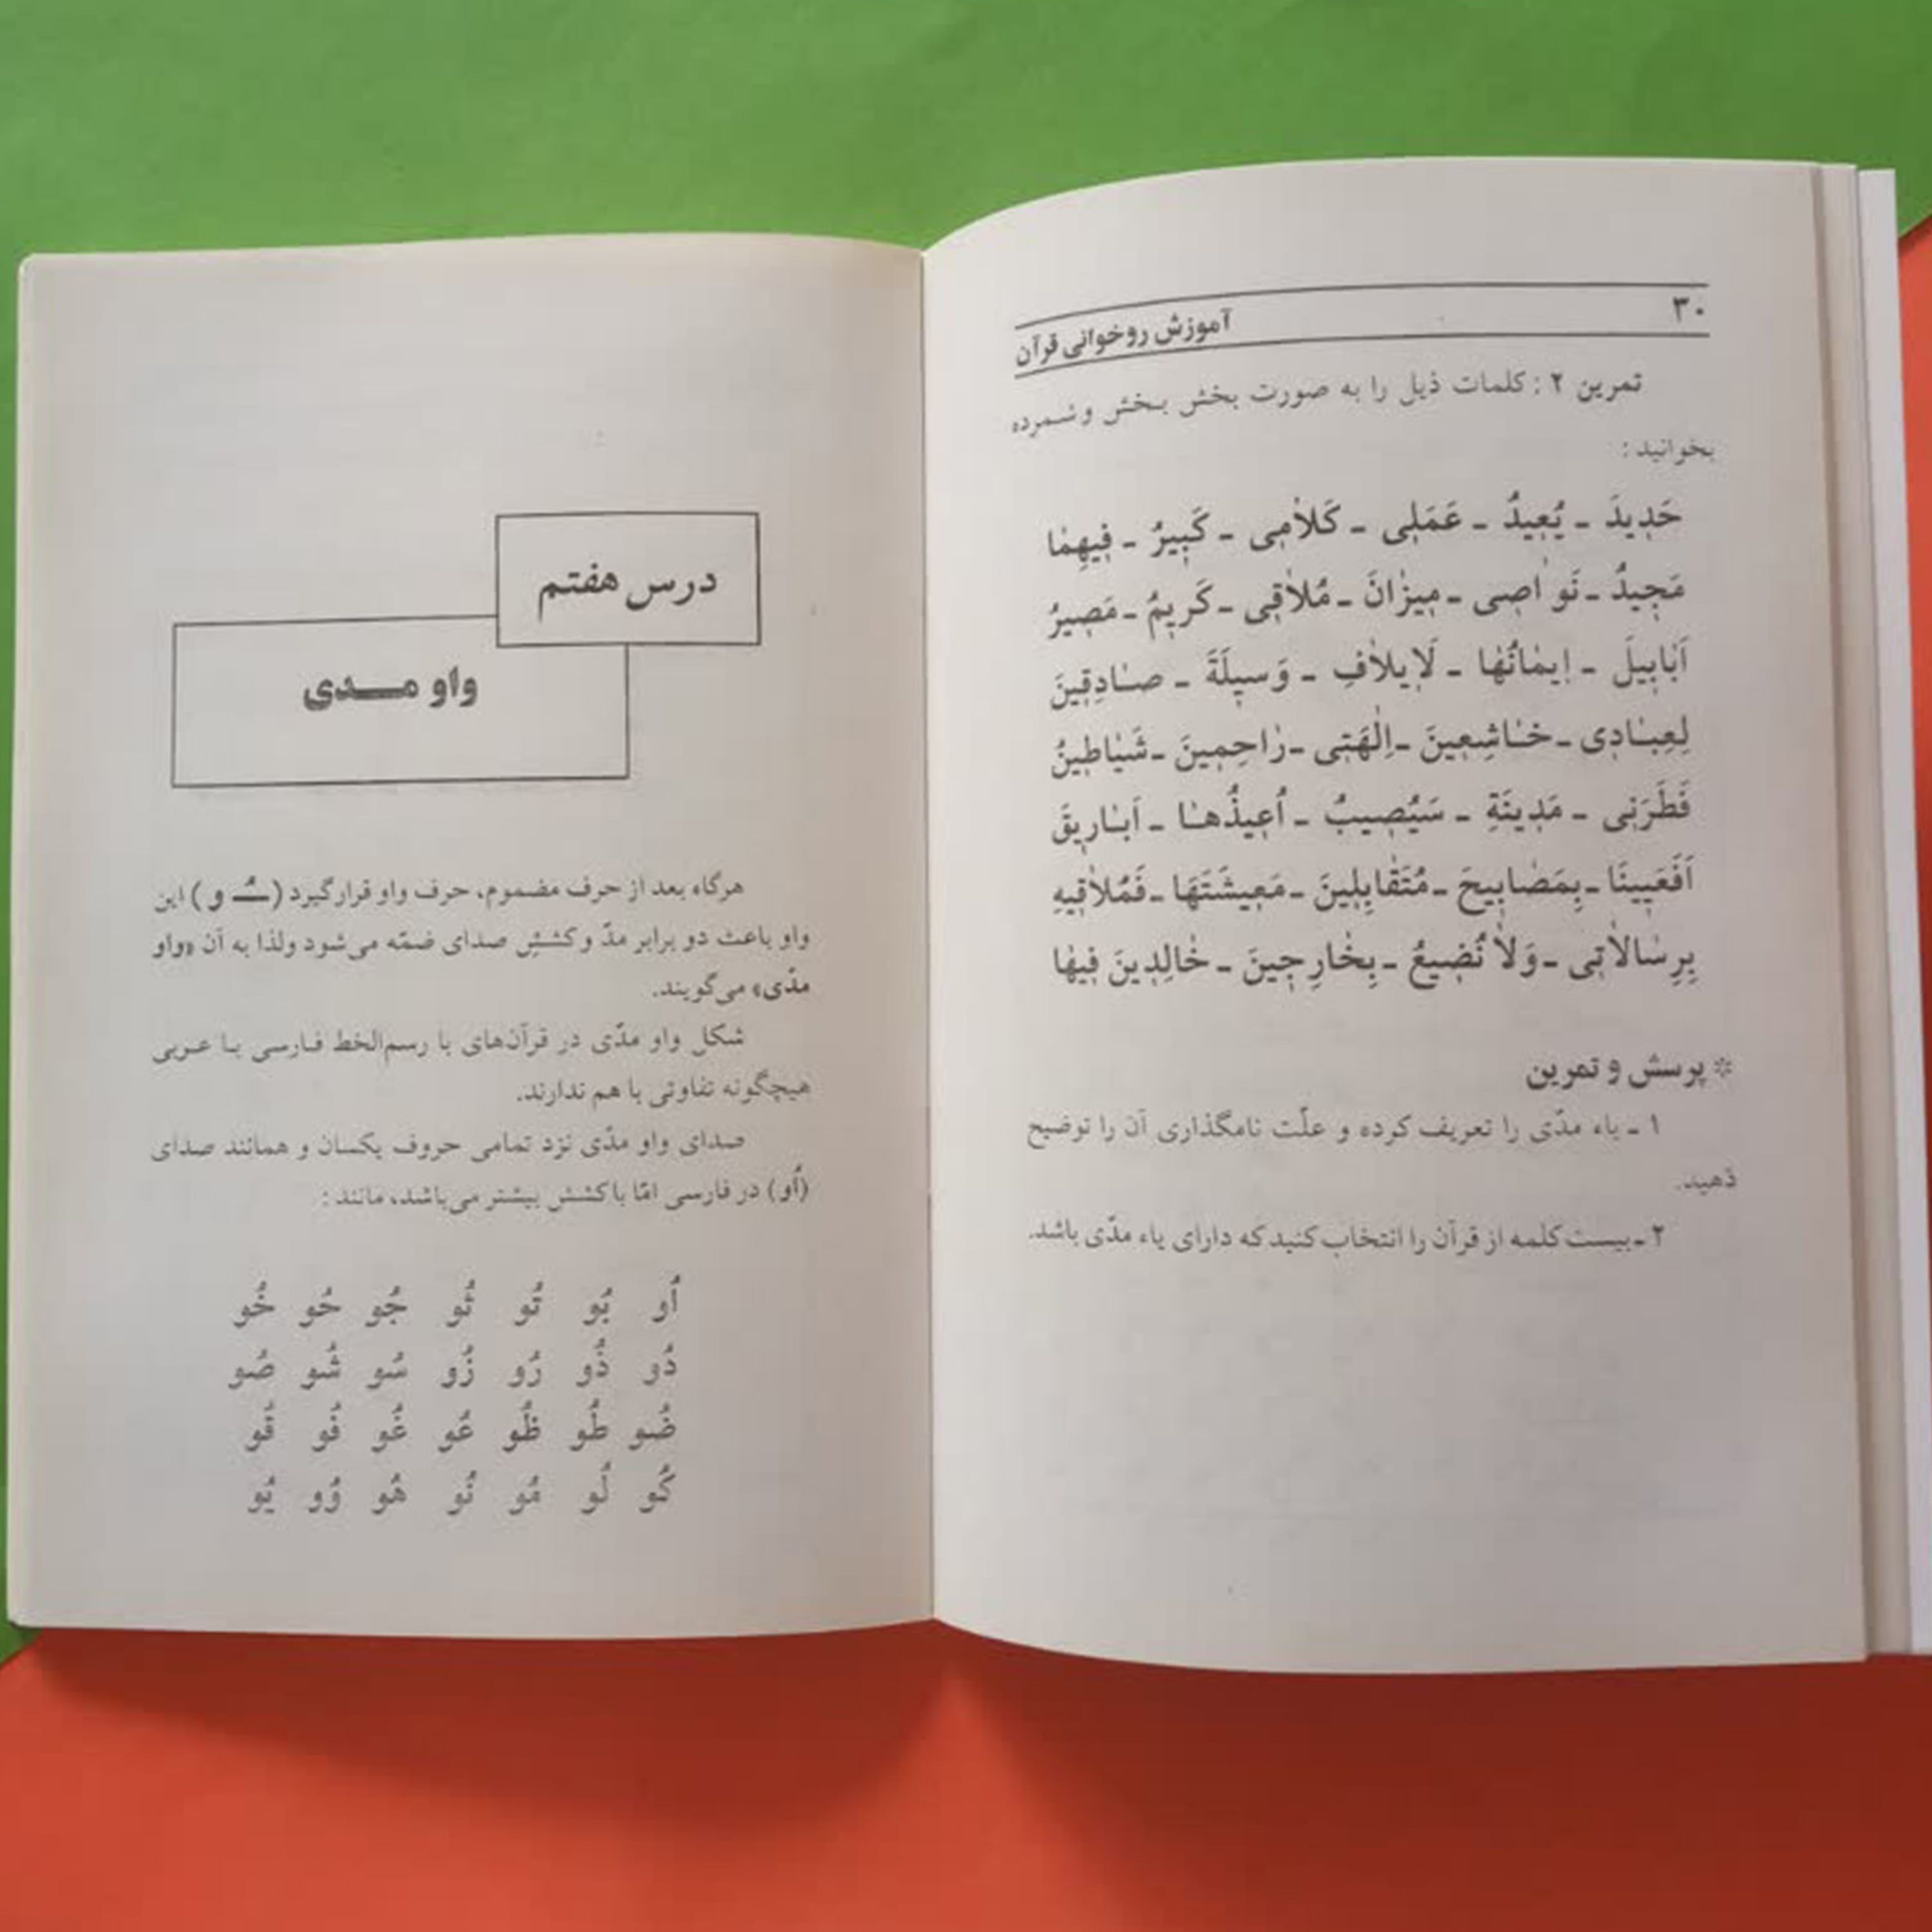 ۳۰
آموزش روخوانی قرآن
تمرین ۲ : کلمات ذیل را به صورت بخش بخش و شمرده
بخوانید :
حَدیدَ ـ یُعیدُ ـ عَمَلی ـ کَلاٰمی ـ کَبیرُ ـ فیهِمٰا
مَجیدُ ـ نَوٰاصی ـ میزٰانَ ـ مُلاٰقی ـ کَریمُ ـ مَصیرُ
اَبٰابیلَ ـ ایمٰانُهٰا ـ لَایلاٰفِ ـ وَسیلَةَ ـ صٰادِقینَ
لِعِبٰادی ـ خٰاشِعینَ ـ اِلٰهَتی ـ رٰاحِمینَ ـ شَیٰاطینُ
فَطَرَنی ـ مَدینَةِ ـ سَیُصیبُ ـ اُعیذُهٰا ـ اَبٰاریقَ
اَفَعَیینٰا ـ بِمَصٰابیحَ ـ مُتَقٰابِلینَ ـ مَعیشَتَهٰا ـ فَمُلاٰقیهِ
بِرِسٰالاٰتی ـ وَلاٰ نُضیعُ ـ بِخٰارِجینَ ـ خٰالِدینَ فیهٰا
* پرسش و تمرین
۱ ـ یاء مدّی را تعریف کرده و علّت نامگذاری آن را توضیح
دهید.
۲ ـ بیست کلمه از قرآن را انتخاب کنید که دارای یاء مدّی باشد.
درس هفتم
واو مـــدی
هرگاه بعد از حرف مضموم، حرف واو قرار گیرد (ـُـ و) این
واو باعث دو برابر مدّ و کششِ صدای ضمّه می‌شود ولذا به آن «واو
مدّی» می‌گویند.
شکل واو مدّی در قرآن‌های با رسم‌الخط فارسی با عربی
هیچگونه تفاوتی با هم ندارند.
صدای واو مدّی نزد تمامی حروف یکسان و همانند صدای
(اُو) در فارسی امّا با کشش بیشتر می‌باشد، مانند :
اُو بُو تُو ثُو جُو حُو خُو
دُو ذُو رُو زُو سُو شُو صُو
ضُو طُو ظُو عُو غُو فُو قُو
کُو لُو مُو نُو هُو وُو یُو